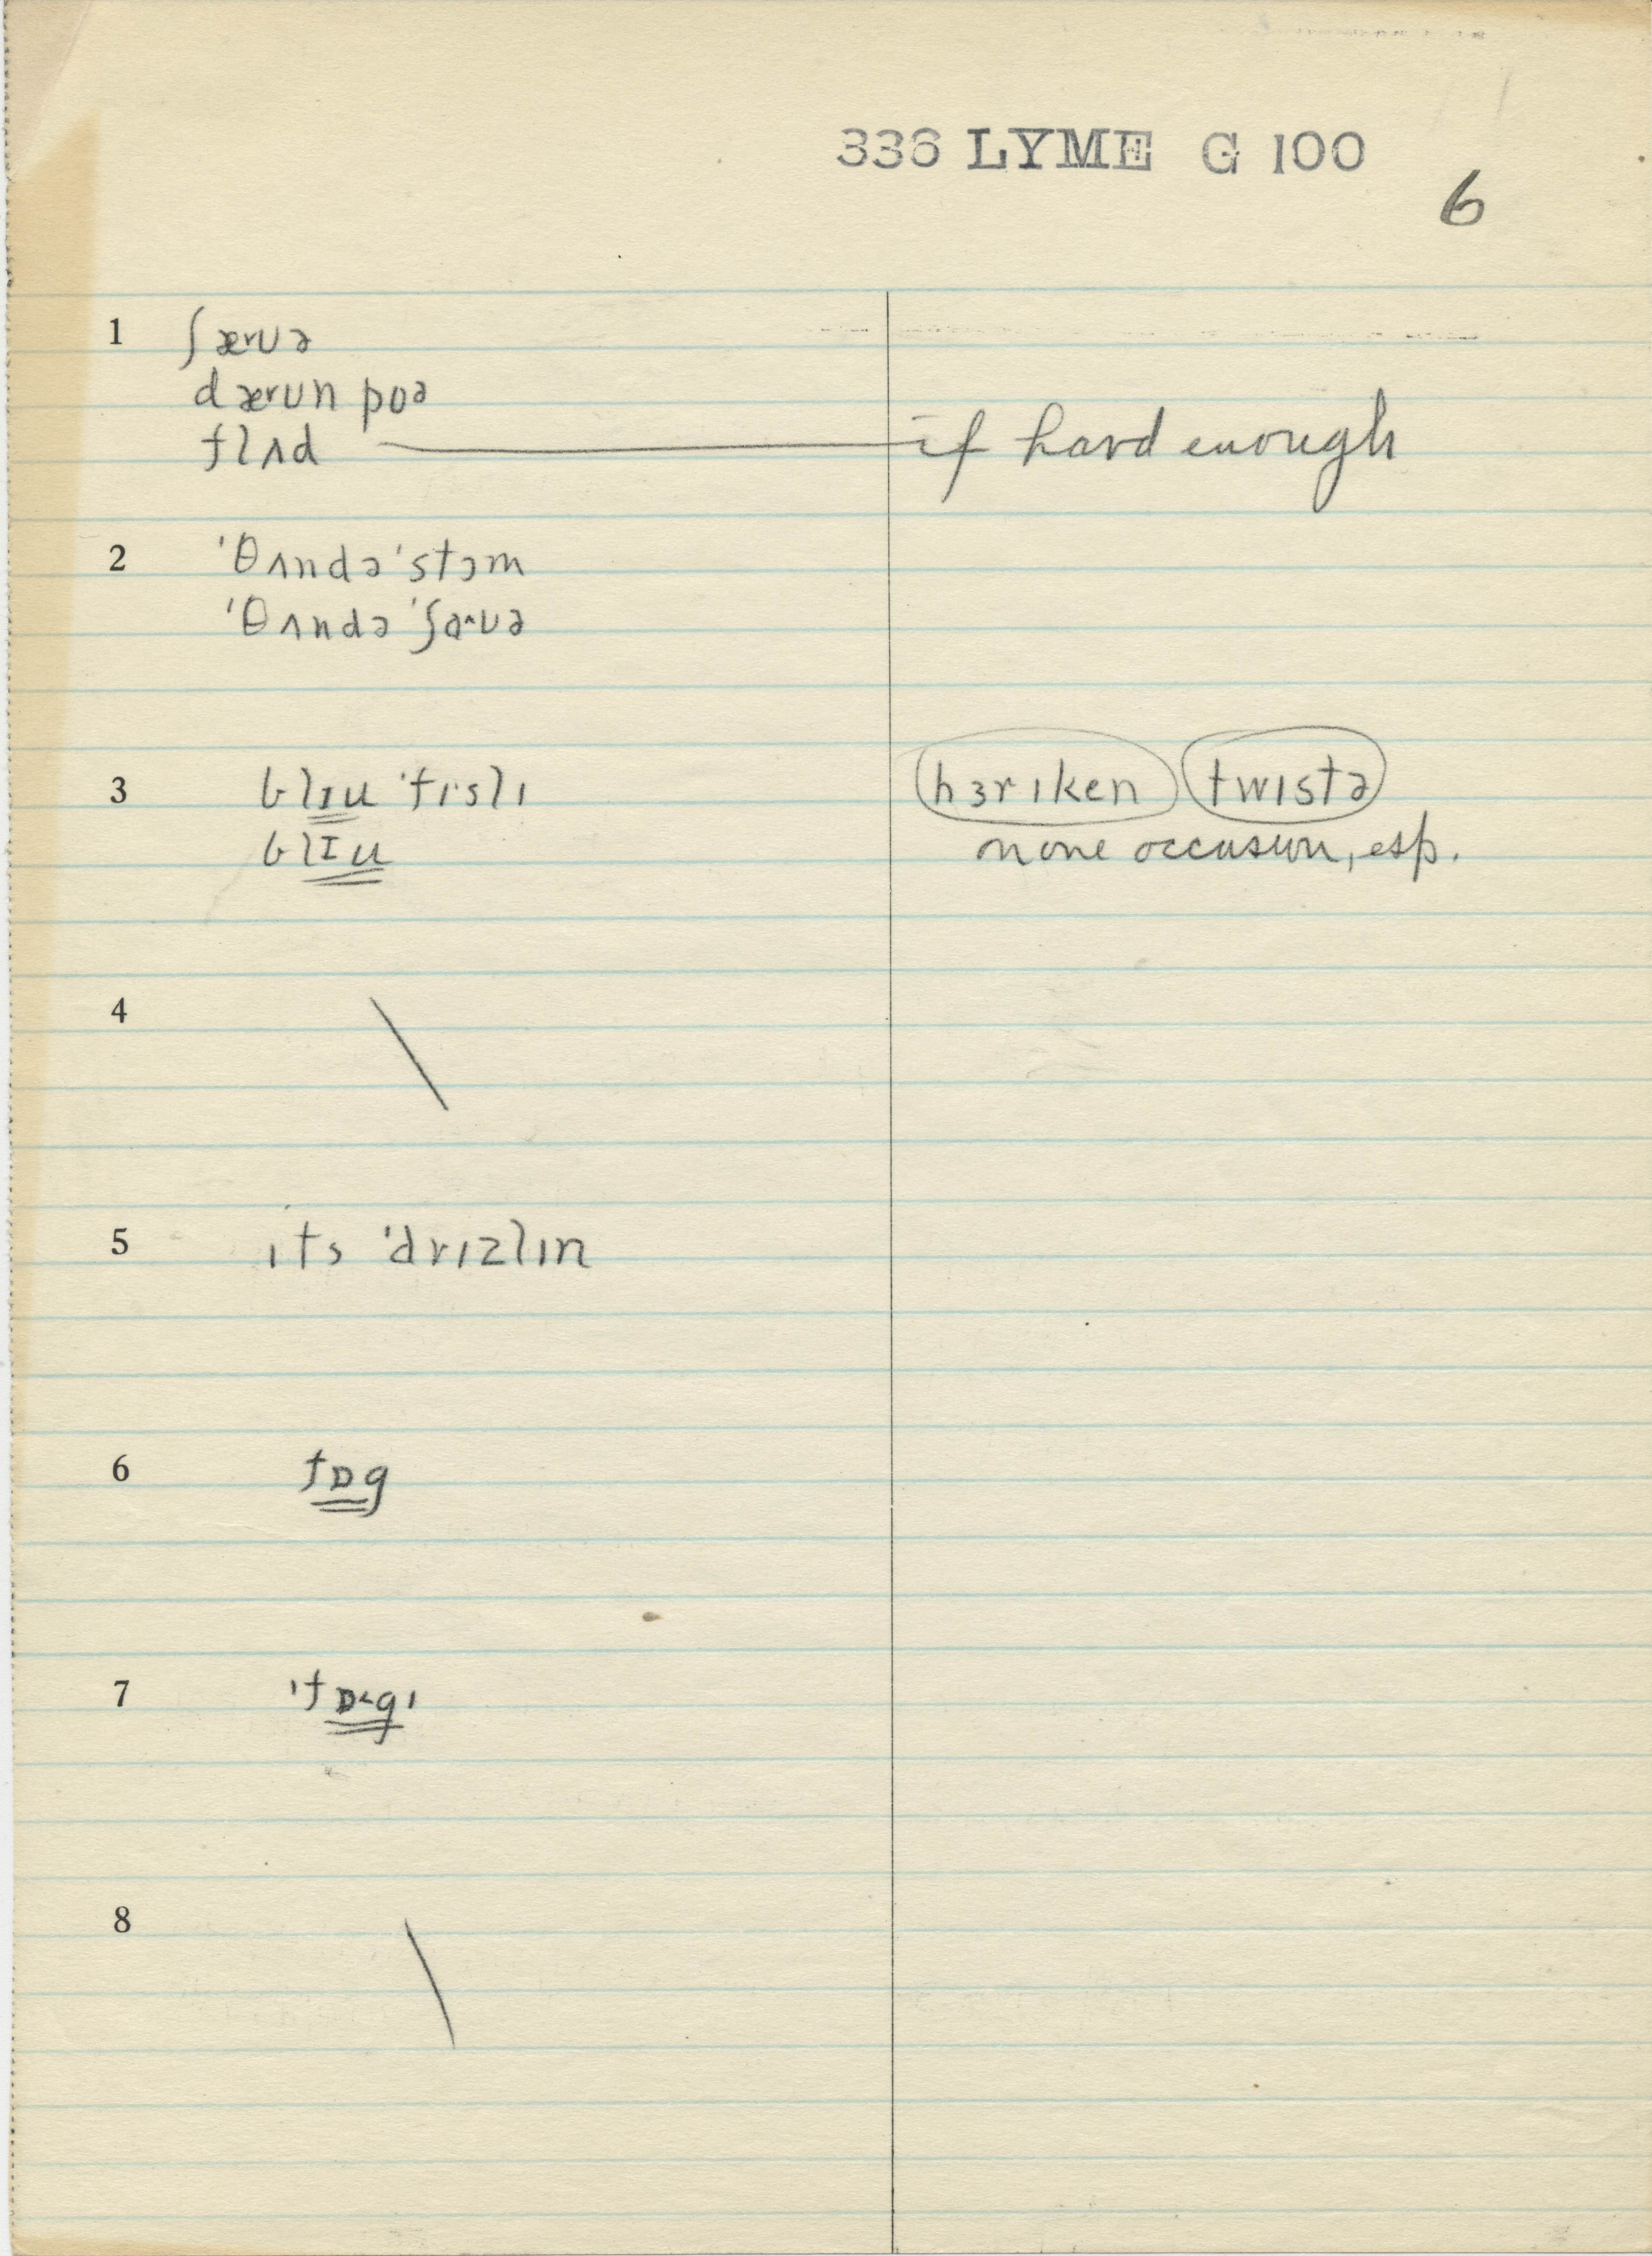 336 LYME G 100
6
1 ʃæʊə
dæʊn poə
flʌd if hard enough
2 ˈθʌndəˈstɔm
ˈθʌndəˈʃaʊə
3 blɪu ˈfɪslɪ hɜrɪken twɪstə
blɪu none occasion, esp.
4
5 ɪts ˈdrɪzlɪn
6 fɒg
7 ˈfɒgɪ
8